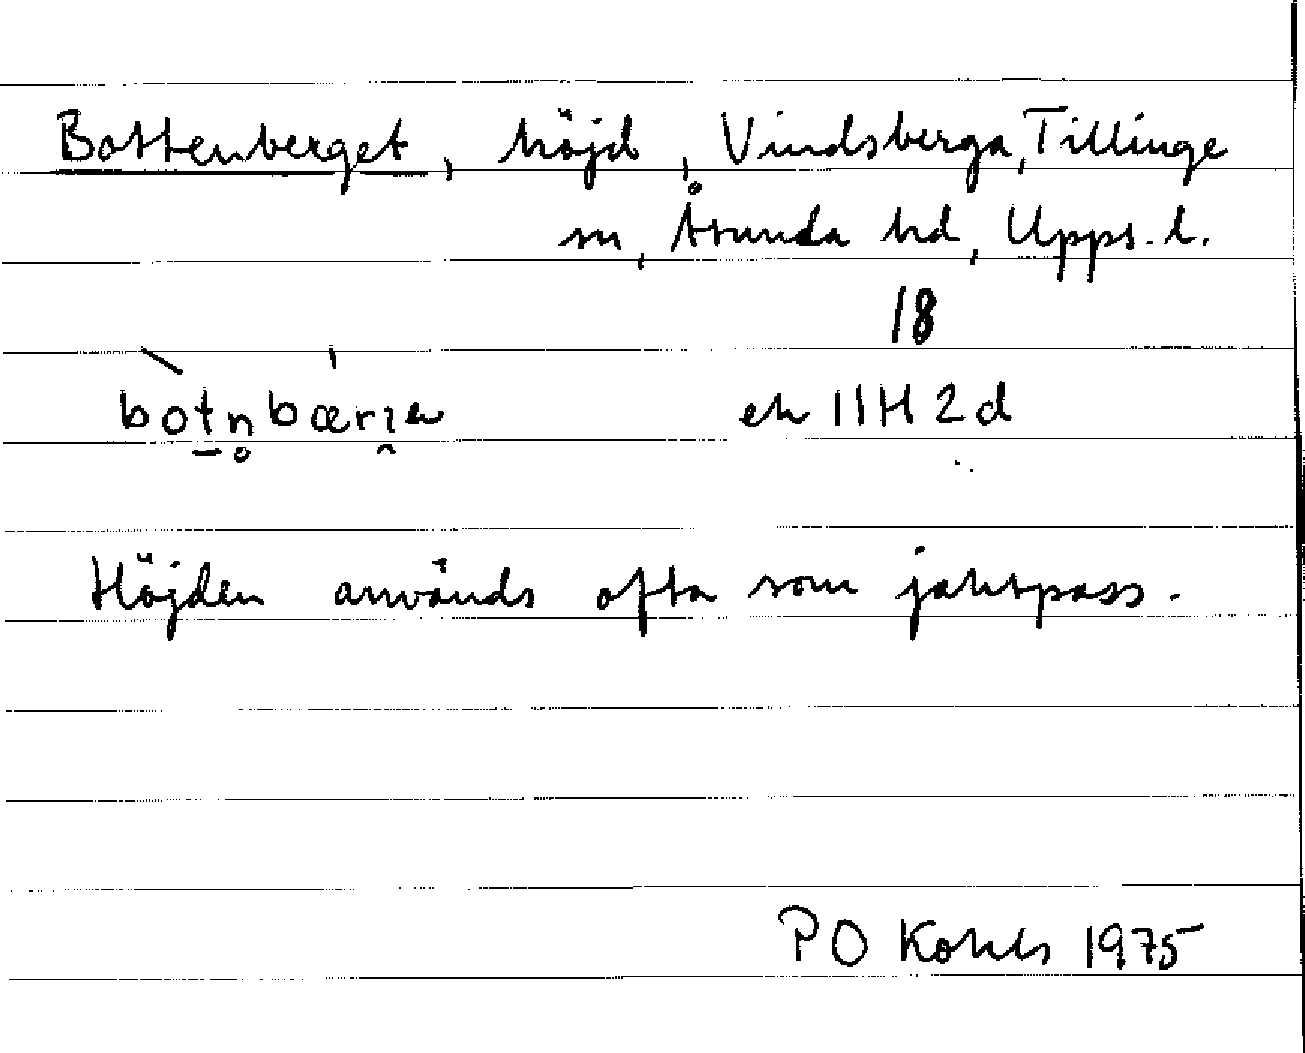 Bottenberget, höjd, Vindsberga, Tillinge
sn, Åsunda hd, Upps. l.
18
bot̠n̥bærı̯e ek 11H 2d
Höjden används ofta som jaktpass.
P O 1975